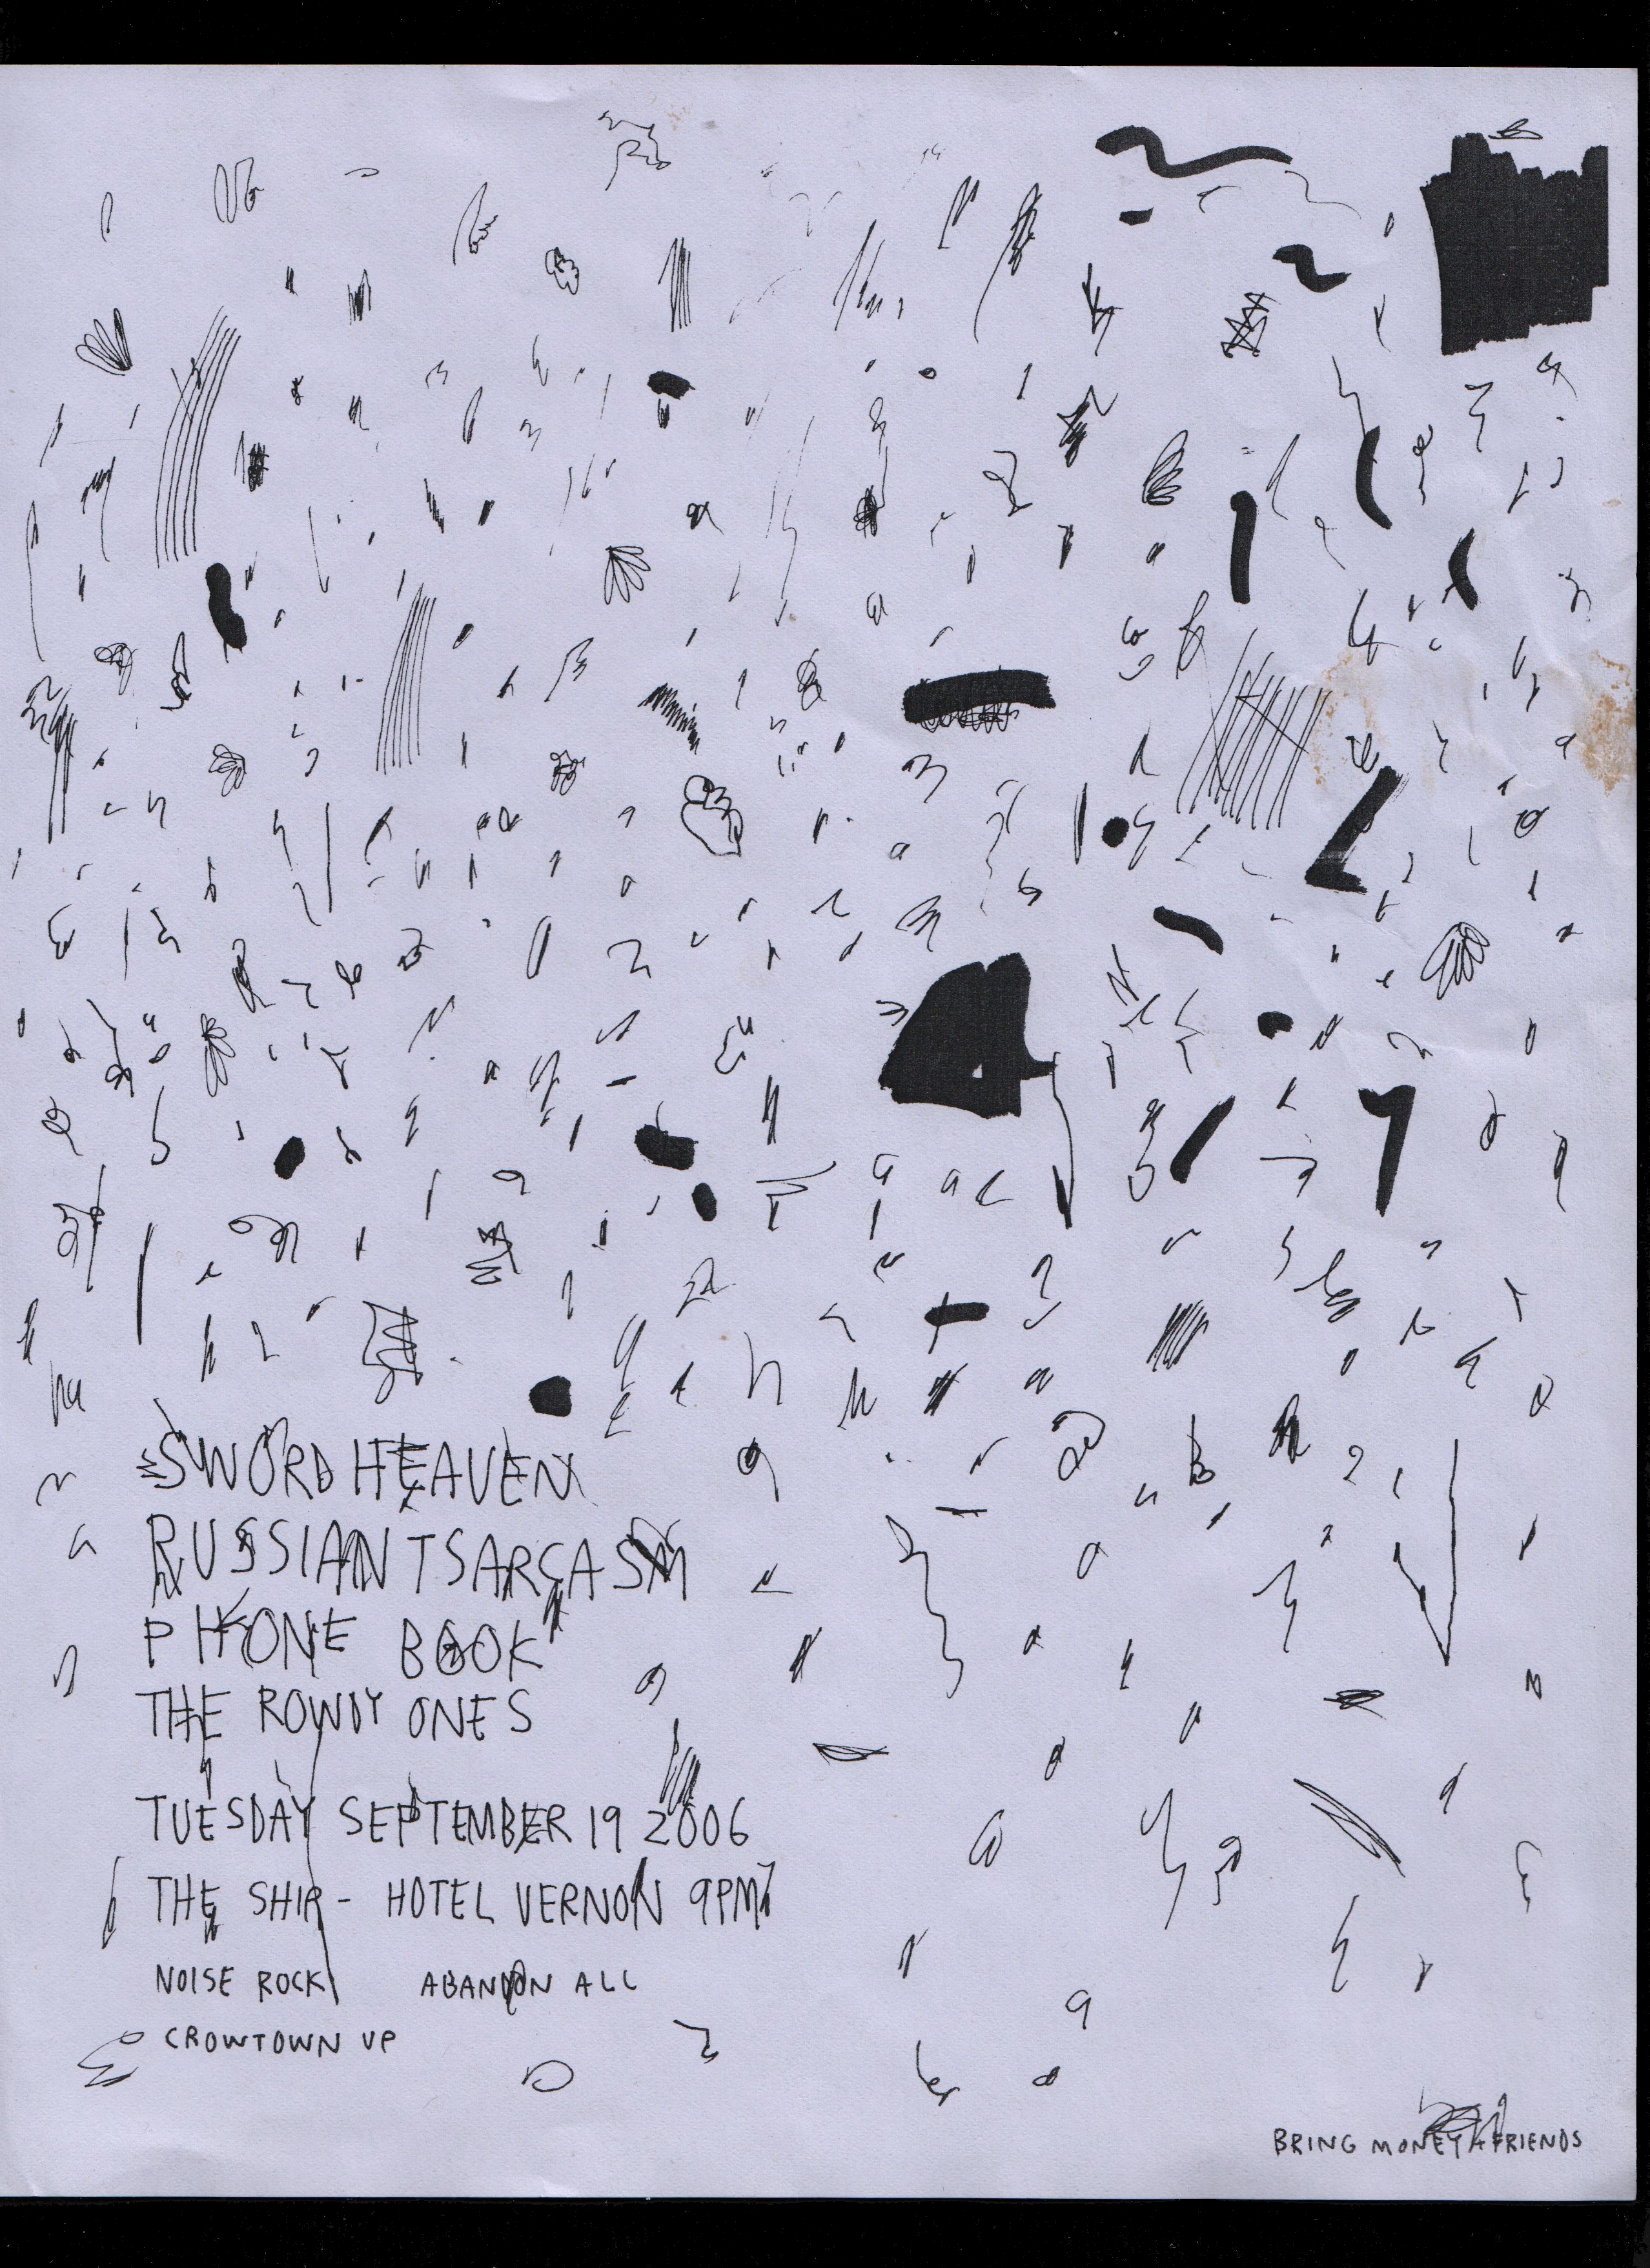 SWORD HEAVEN
RUSSIAN TSARCASM
PHONE BOOK
THE ROWDY ONES
TUESDAY SEPTEMBER 19 2006
THE SHIP - HOTEL VERNON 9PM
NOISE ROCK ABANDON ALL
CROWTOWN UP
BRING MONEY + FRIENDS